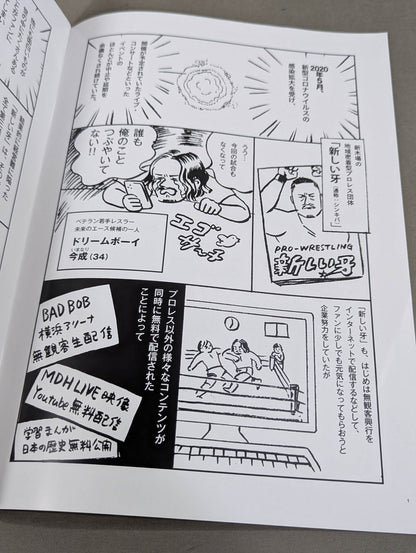 2020年5月、
新型コロナウイルスの
感染拡大を受け、
開催が予定されていたライブ・
コンサートなどといった
イベントの
ほとんどが中止や延期を
余儀なくされ続けていた。
新木場の
地域密着型プロレス団体
「新しい牙」
(通称・シンキバ)
PRO-WRESTLING
新しい牙
うう…
今回の試合も
なくなって
誰も
俺のこと
つぶやいて
ない!!
エゴ
サーチ
ベテラン若手レスラー
未来のエース候補の一人
ドリームボーイ
いまなり
今成(34)
「新しい牙」も、はじめは無観客興行を
インターネットで配信するなどして、
ファンに少しでも元気になってもらおうと
企業努力をしていたが
プロレス以外の様々なコンテンツが
同時に無料で配信された
ことによって
BAD BOB
横浜アリーナ
無観客生配信
MDH LIVE映像
Youtube無料配信
学習まんが
日本の歴史無料公開
1